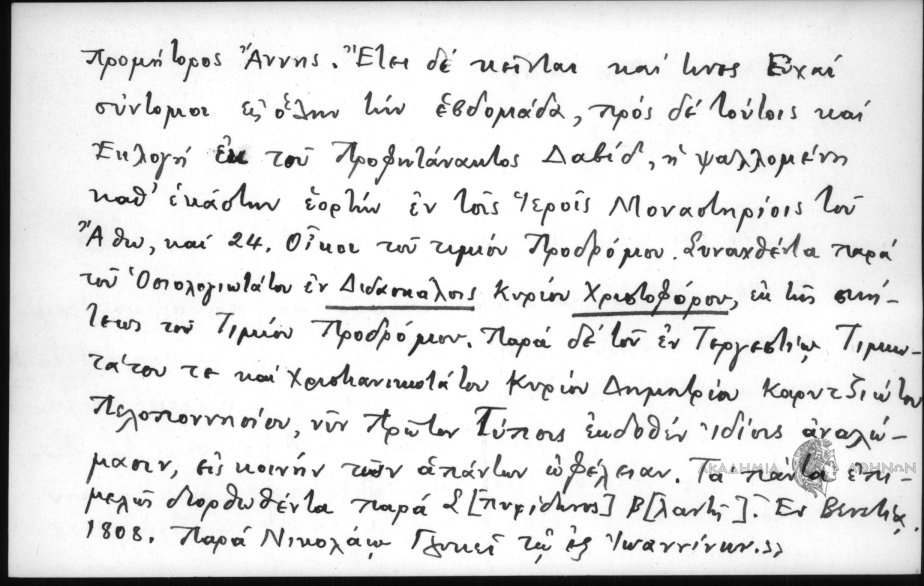 Προμήτορος Ἄννης. Ἔτι δέ κεῖνται καί τινες Εὐχαί
σύντομοι εἰς ὅλην τήν ἑβδομάδα, πρός δέ τούτοις καί
Ἐκλογή ἐκ τοῦ Προφητάνακτος Δαβίδ, ἡ ψαλλομένη
καθ' ἑκάστην ἑορτήν ἐν τοῖς Ἱεροῖς Μοναστηρίοις τοῦ
Ἄθω, καί 24. Οἶκοι τοῦ τιμίου Προδρόμου. Συναχθέντα παρά
τοῦ Ὁσιολογιωτάτου ἐν Διδασκάλοις Κυρίου Χριστοφόρου, ἐκ τῆς σκή-
τεως τοῦ Τιμίου Προδρόμου. Παρά δέ τοῦ ἐν Τεργεστίῳ Τιμιω-
τάτου τε καί Χριστιανικωτάτου Κυρίου Δημητρίου Καρυτζιώτου
Πελοποννησίου, νῦν Πρῶτον Τύποις ἐκδοθέν ἰδίοις ἀναλώ-
μασιν, εἰς κοινήν τῶν ἁπάντων ὠφέλειαν. Τά πάντα ἐπι-
μελῶς διορθωθέντα παρά Σ[πυρίδωνος] Β[λαντῆ]. Ἐν Βενετίᾳ,
1808. Παρά Νικολάῳ Γλυκεῖ τῷ ἐξ Ἰωαννίνων.»
ΑΚΑΔΗΜΙΑ ΑΘΗΝΩΝ